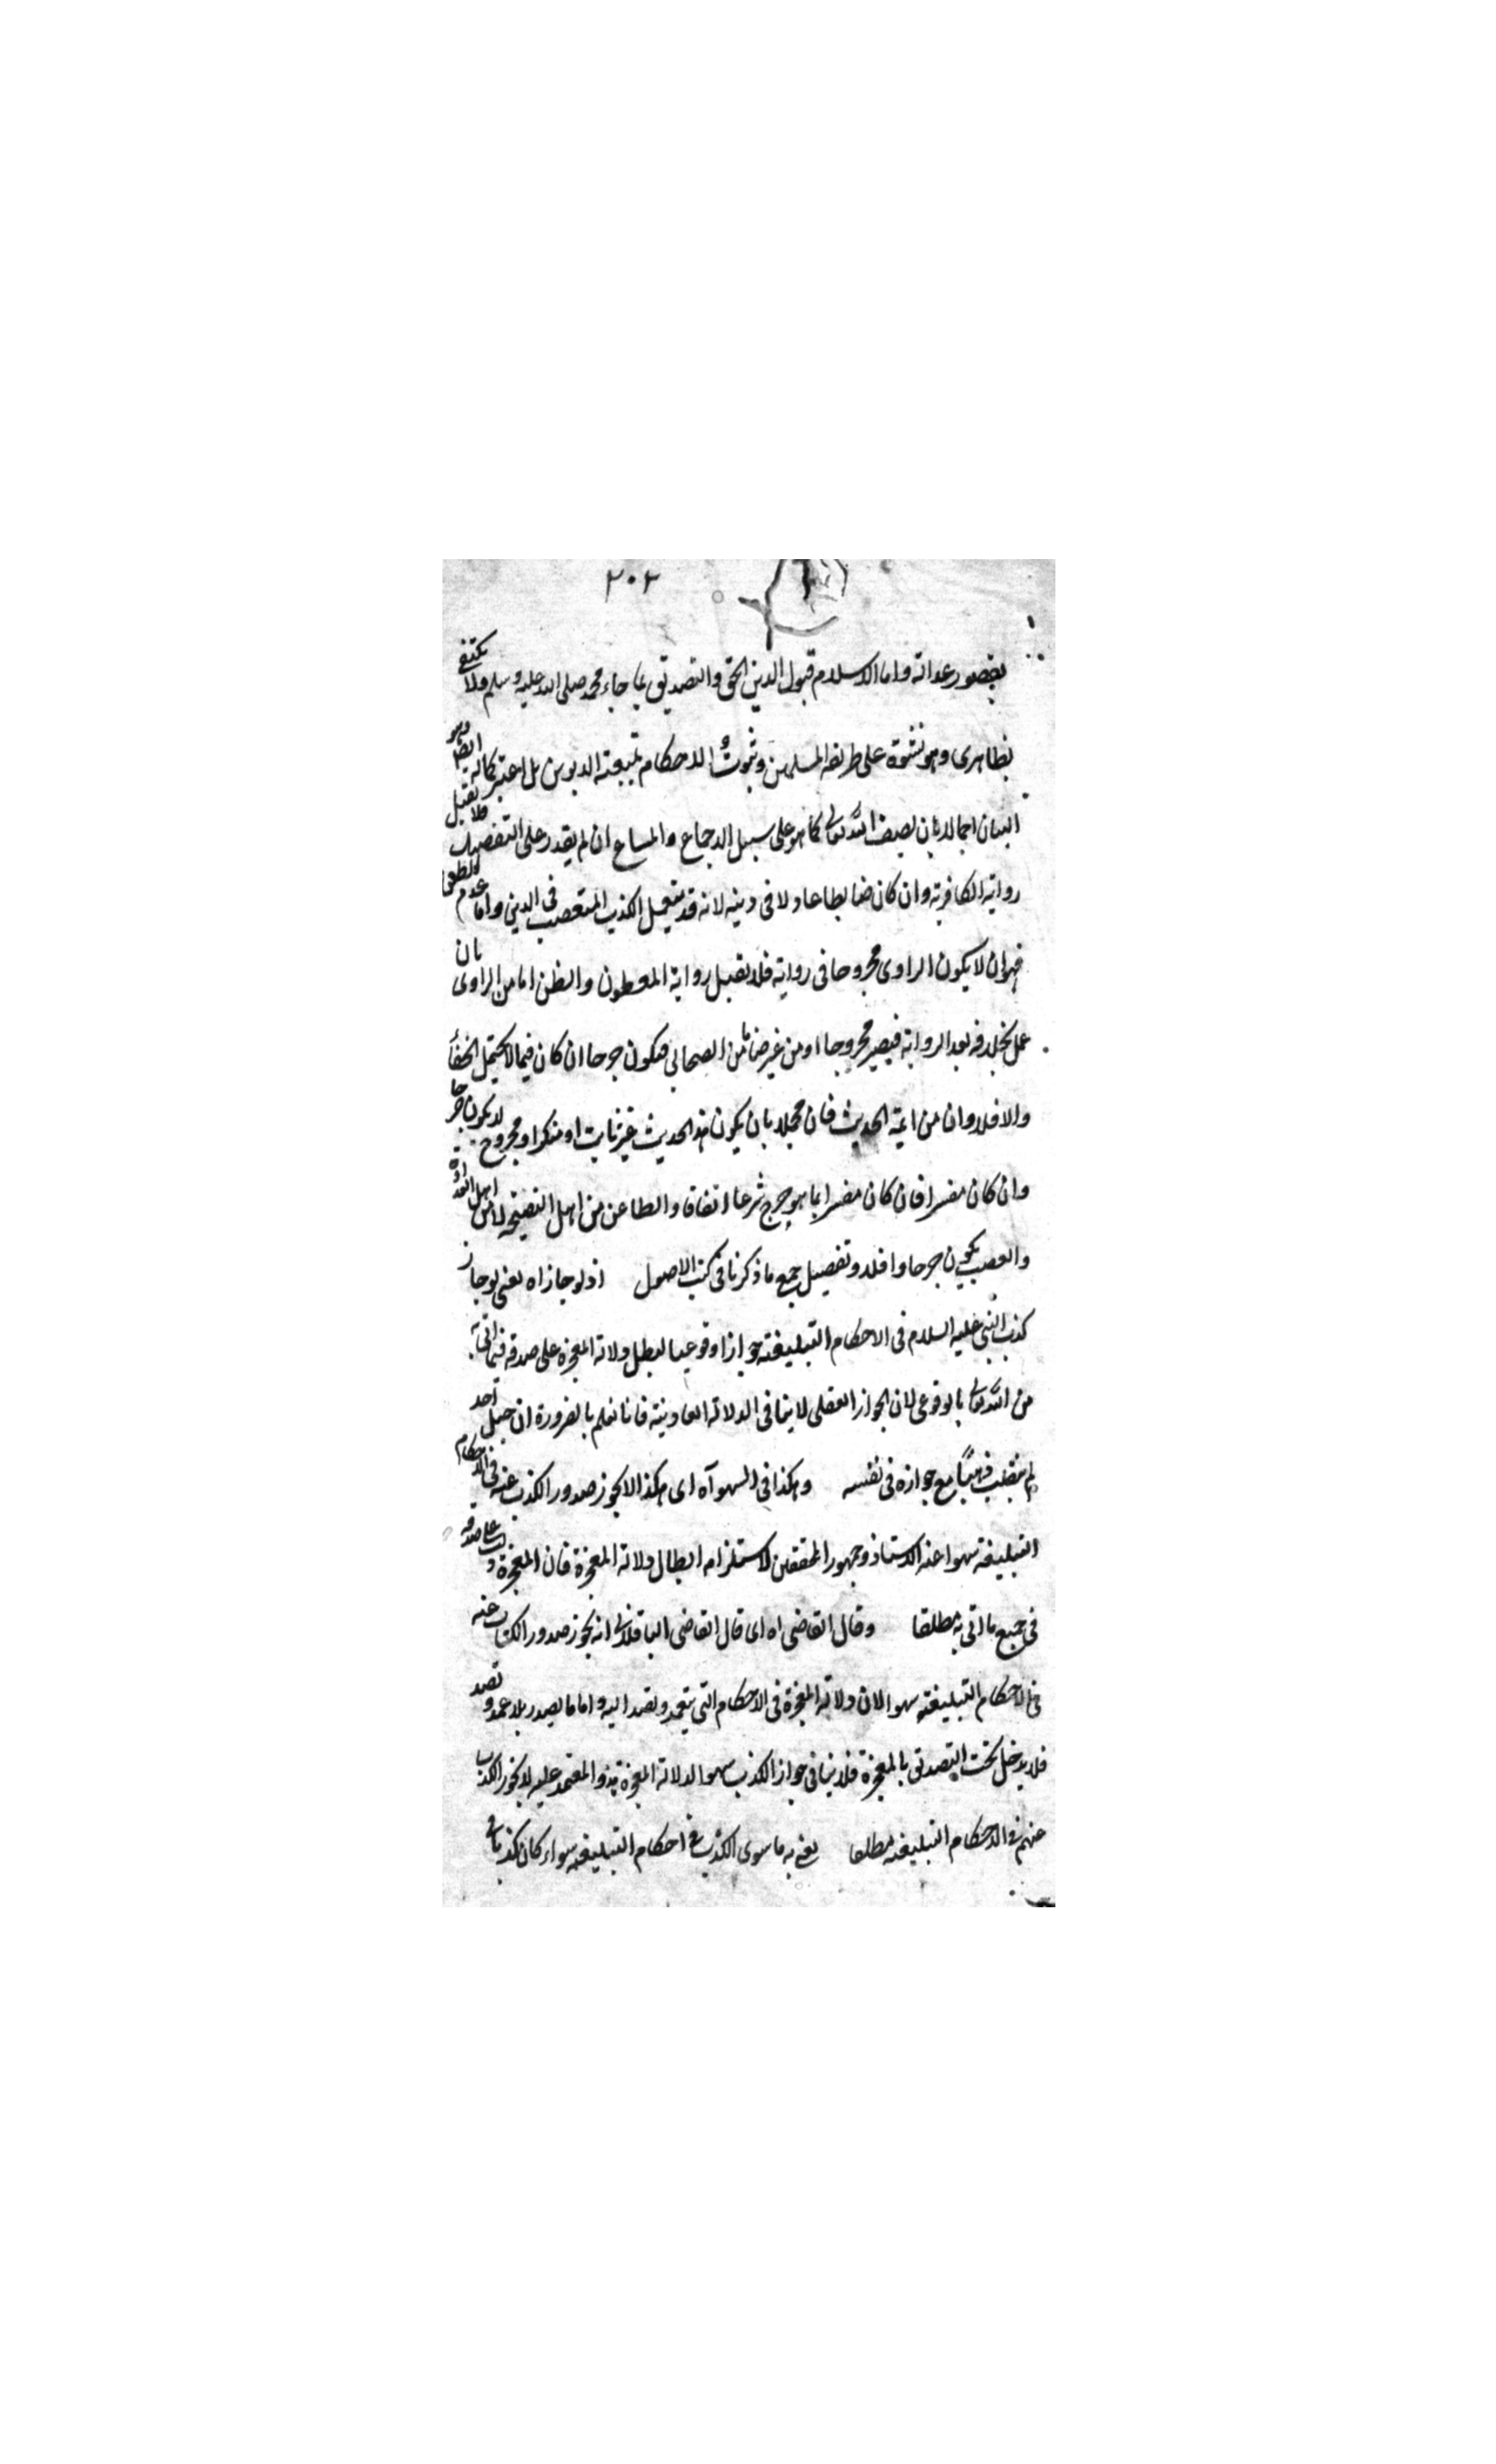 ٢٠٢
بقصور عدالته واما الاسلام قبول الدين الحق والتصديق بما جاء محمد صلى الله عليه وسلم ولا يكتفى
بظاهرى وهو نشوة على طريقة المسلمين وثبوت الاحكام بتبعته الابوين بل اعتبر كماله ايضا وهو
البيان اجمالا بان يصف الله تعالى كما هو على سبيل الاجماع والمساع ان لم يقدر على التفصيل فلا تقبل
رواية الكافر به وان كان ضابطا عادلا فى دينه لانه قد يتحمل الكذب المتعصب فى الدين واما عدم الطعن
فهو ان لا يكون الراوى مجروحا فى روايته فلا يقبل رواية المعطون والطن اما من الراوى بان
عمل بخلافه بعد الرواية فيصير مجروحا او من غيره فاما من الصحابى فيكون جرحا ان كان فيما لا يحتمل الخفأ
والا فلا وان من ائمة الحديث فان مجملا بان يكون هذا الحديث غير ثابت او منكرا او مجروح لا يكون جرحا
وان كان مفسرا فان كان مفسرا بما هو جرح شرعا اتفاقا والطاعن من اهل النصيحة لا من اهل العداوة
والعصب يكون جرحا والا فلا وتفصيل جمع ما ذكرنا فى كتب الاصول اذ لو جاز اه يعنى لو جاز
كذب النبى عليه السلام فى الاحكام التبليغية جوازا وقوعيا لبطل دلالة المعجزة على صدقه فيما اتى به
من الله تعالى بالوقوعى لان الجواز العقلى لا ينافى الدلالة العادية فانا نعلم بالضرورة ان جبل احد
لم ينقلب ذهبًا مع جوازه فى نفسه وهكذا فى السهو آه اى هكذا لا يجوز صدور الكذب عنه فى الاحكام
التبليغية سهوا عند الاستاذ وجمهور المحققين لاستلزامه ابطال دلالة المعجزة فان المعجزة دلت على صدقه
فى جميع ما اتى به مطلقا وقال القاضى اه اى قال القاضى الباقلانى انه يجوز صدور الكذب عنه
فى الاحكام التبليغية سهوا لان دلالة المعجزة فى الاحكام التى يتعمد وقصد اليه واما ما يصدر بلا عمد و قصد
فلا يدخل تحت التصديق بالمعجزة فلا ينافى جواز الكذب سهوا لدلالة المعجزة هذ والمعتمد عليه لا يجوز الكذب
عنهم فى الاحكام التبليغية مطلقا يعنى به ما سوى الكذب فى احكام التبليغية سواء كان كذبا فى